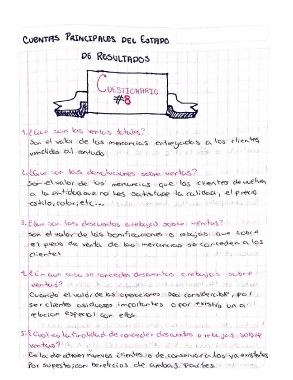 CUENTAS PRINCIPALES DEL ESTADO
DE RESULTADOS
CUESTIONARIO
#8
1. ¿Que son las ventas totales?
Son el valor de las mercancias entregadas a los clientes
vendida al contado
2. ¿Que son las devoluciones sobre ventas?
Son el valor de las mercancias que los clientes devuelven
a la entidad no les satisface la calidad, el precio
estilo, color, etc...
3. ¿Que son los descuentos o rebajas sobre ventas?
Son el valor de las bonificaciones o rebajas que sobre
el precio de venta de las mercancias se conceden a los
clientes
4. ¿En que caso se conceden descuentos o rebajas sobre
ventas?
Cuando el valor de las operaciones sea considerable, por
ser clientes cuidadosos importantes o por existir una
relacion especial con ellos
5. ¿Cual es la finalidad de conceder descuentos o rebajas, sobre
ventas?
Es la de obtener nuevos clientes o de conservar a los ya existentes
Por supuesto buscan beneficios de ambas partes